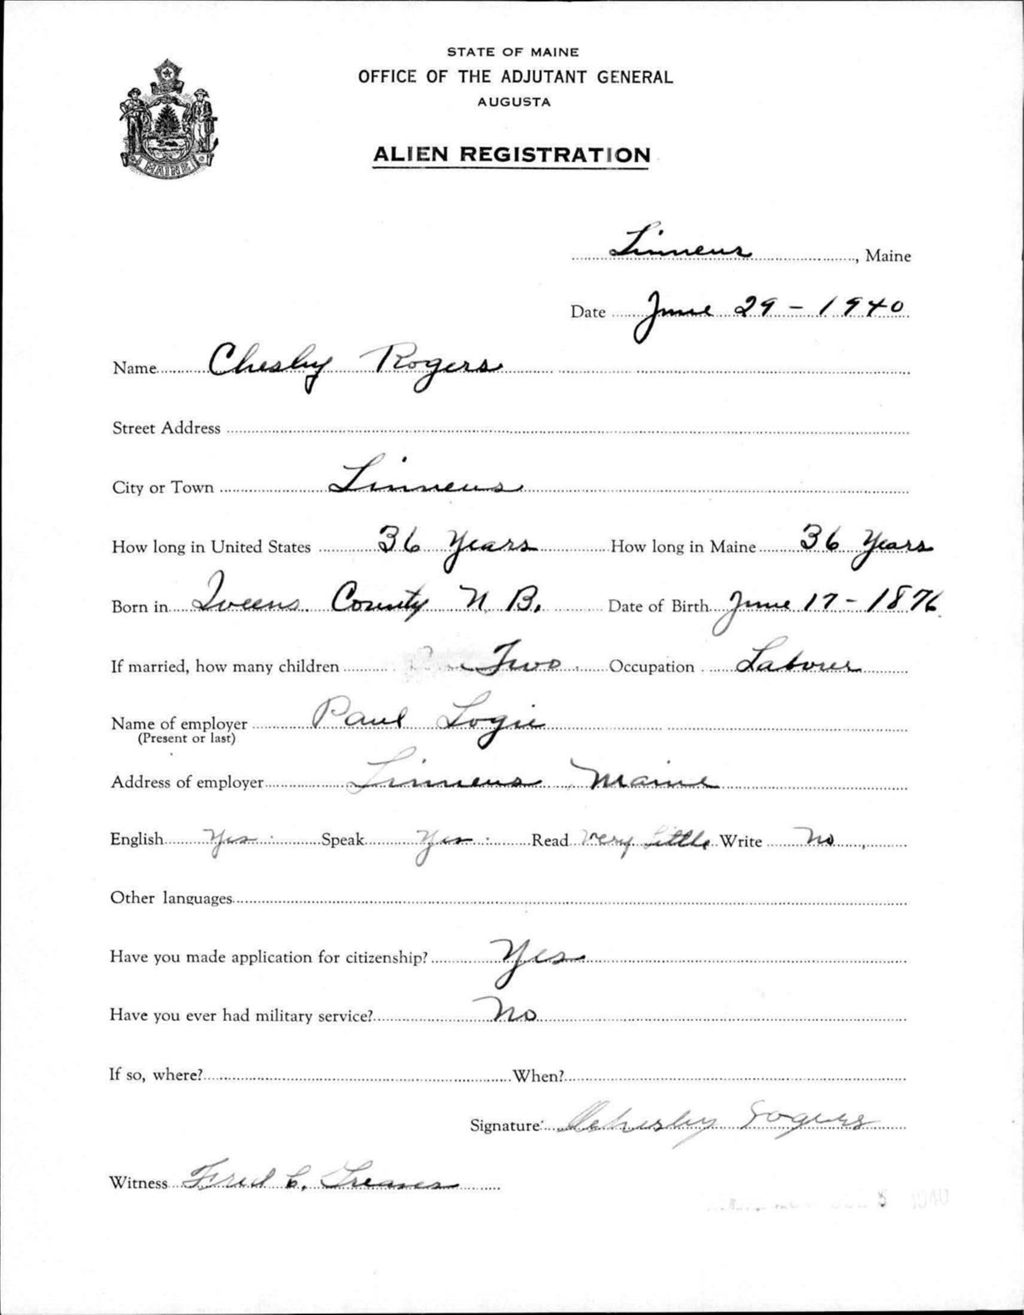 STATE OF MAINE
OFFICE OF THE ADJUTANT GENERAL
AUGUSTA
ALIEN REGISTRATION
MAINE
Linneus, Maine
Date June 29 - 1940
Name Chesley Rogers
Street Address
City or Town Linneus
How long in United States 36 Years How long in Maine 36 Years
Born in Queens County N B. Date of Birth June 17 - 1876
If married, how many children Two Occupation Laborer
Name of employer Paul Logie
(Present or last)
Address of employer Linneus, Maine
English Yes Speak Yes Read Very Little Write No
Other languages
Have you made application for citizenship? Yes
Have you ever had military service? No
If so, where? When?
Signature Chesley Rogers
Witness Fred C.
1940